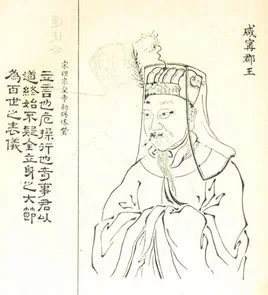 咸寧郡王
宋理宗皇帝勅賜像贊
立言也危操行也奇事君以
道終始不疑全立身之大節
為百世之表儀